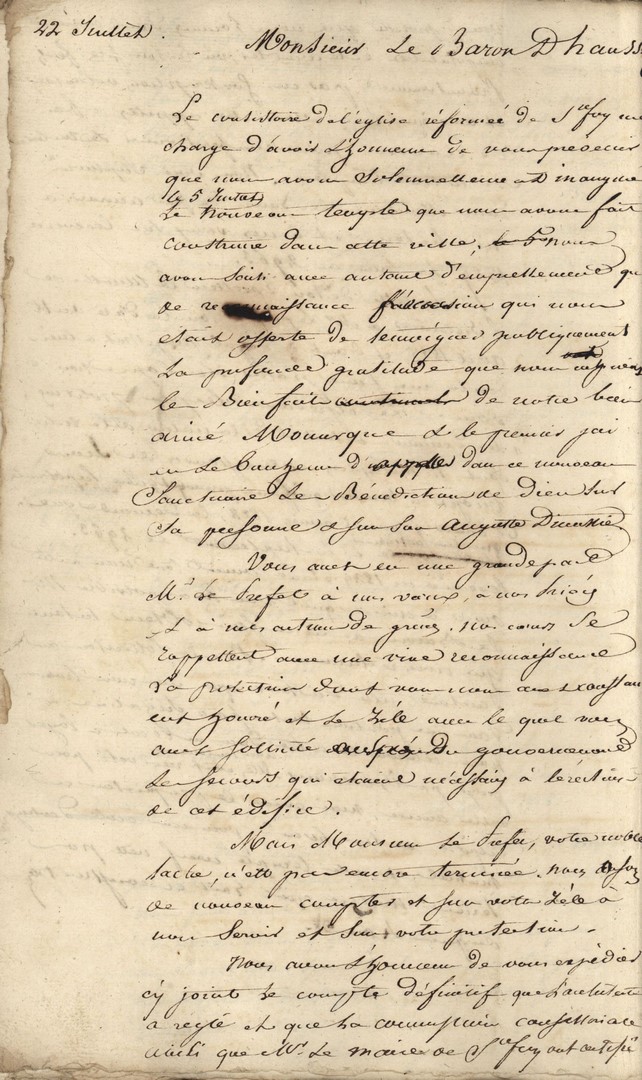 22 Juillet
Monsieur Le Baron Dhauss
Le consistoire de l'église réformée de Ste foy me
charge d'avoir L'honneur de vous
que nous avons Solemnellement inauguré
le 5 Juillet
Le nouveau temple que nous avons fait
construire dans cette ville, le 5 nous
avons saisi avec autant d'empressement que
de reconnaissance l'occasion qui nous
était offerte de temoigner publiquement
La profonde gratitude que nous
les Bienfaits de notre bien
aimé Monarque & le premier j'ai
eu Le bonheur d'appeller dans ce nouveau
Sanctuaire Les Bénédictions de Dieu sur
Sa personne & sur Son Auguste Dinastie
Vous avez eu une grande part
Mr Le Prefet à nos vœux, à nos Prières
& à nos actions de grâces. nos cœurs Se
rappellent avec une vive reconnaissance
La protection dont vous nous avez constam
ent honoré et Le Zèle avec le quel vous
avez sollicité auprès Du gouvernement
Les secours qui etaient nécessaires à l'érection
de cet édifice.
Mais Monsieur Le Prefet, votre noble
tache, n'est pas encore terminée. nous
de nouveau compter et sur votre Zèle à
nous Servir et Sur votre protection.
Nous avons L'honneur de vous expédier
cy joint Le compte définitif que L'architecte
a reglé et que La commission consistoriale
ainsi que Mr Le maire de Ste foy ont